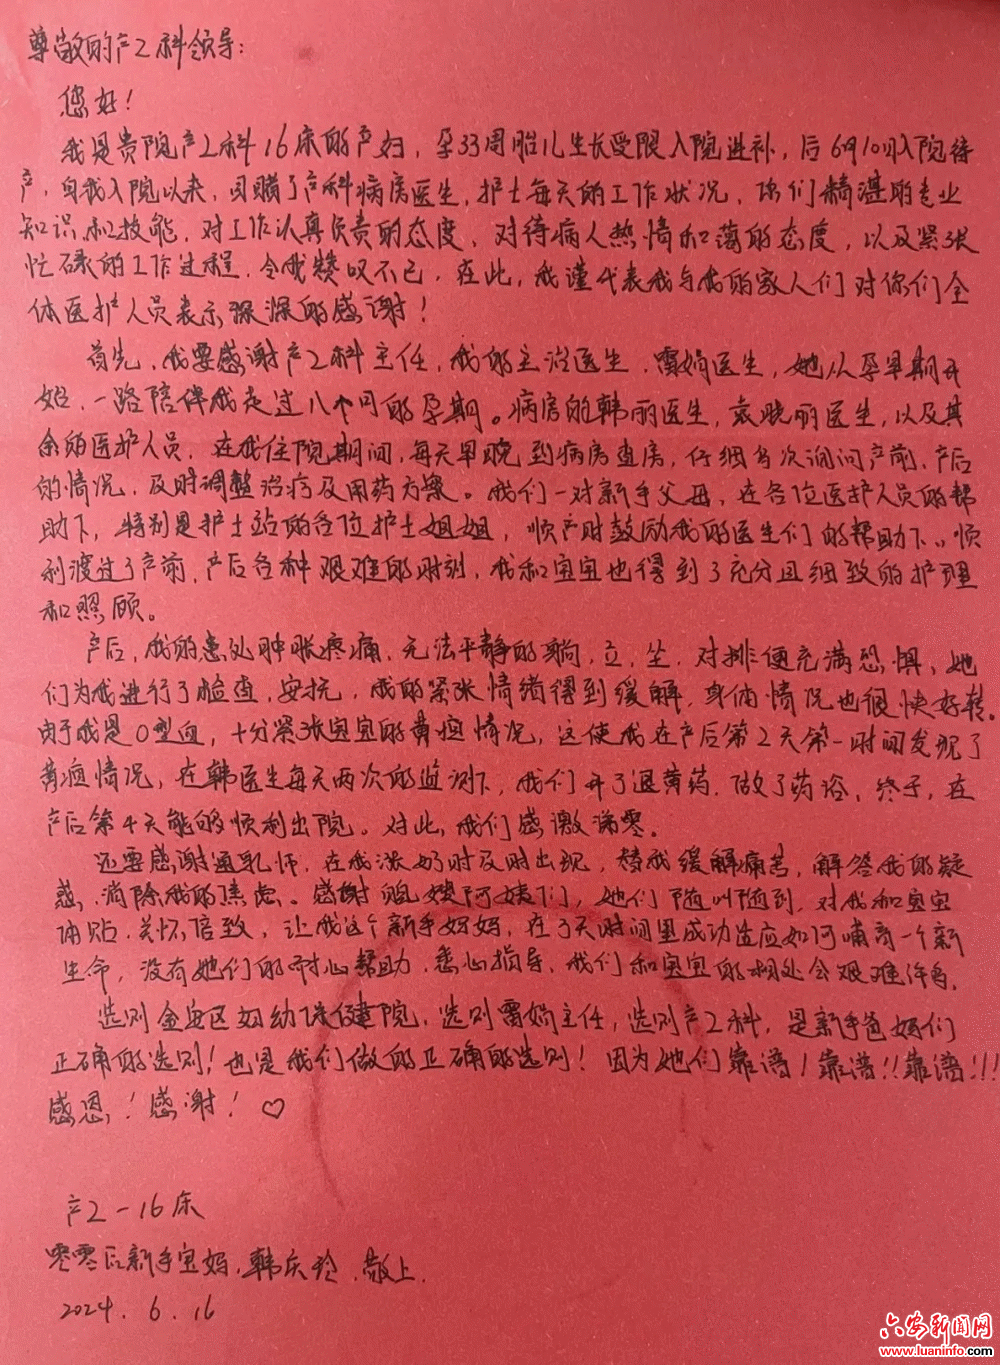 尊敬的产2科领导：
您好！
我是贵院产2科16床的产妇，孕33周胎儿生长受限入院进补，后6月10日入院待
产，自我入院以来，目睹了产科病房医生，护士每天的工作状况，你们精湛的专业
知识和技能，对工作认真负责的态度，对待病人热情和蔼的态度，以及紧张
忙碌的工作过程，令我赞叹不已，在此，我谨代表我与我的家人们对你们全
体医护人员表示深深的感谢！
首先，我要感谢产2科主任，我的主治医生，雷娟医生，她从孕早期开
始，一路陪伴我走过八个月的孕期。病房的韩丽医生，袁晓丽医生，以及其
余的医护人员，在我住院期间，每天早晚到病房查房，仔细多次询问产前、产后
的情况，及时调整治疗及用药方案。我们一对新手父母，在各位医护人员的帮
助下，特别是护士站的各位护士姐姐，顺产时鼓励我的医生们的帮助下。顺
利渡过了产前，产后各种艰难的时刻，我和宝宝也得到了充分且细致的护理
和照顾。
产后，我的患处肿胀疼痛，无法平静的躺，立，坐，对排便充满恐惧，她
们为我进行了检查，安抚，我的紧张情绪得到缓解，身体情况也很快好转。
由于我是O型血，十分紧张宝宝的黄疸情况，这使我在产后第2天第一时间发现了
黄疸情况，在韩医生每天两次的监测下，我们开了退黄药，做了药浴，终于，在
产后第4天能够顺利出院。对此，我们感激涕零。
还要感谢通乳师，在我涨奶时及时出现，替我缓解痛苦，解答我的疑
惑，消除我的焦虑。感谢月嫂阿姨们，她们随叫随到，对我和宝宝
体贴，关怀倍致，让我这个新手妈妈，在3天时间里成功适应如何哺育一个新
生命，没有她们的耐心帮助，悉心指导，我们和宝宝的相处会艰难许多。
选则金安区妇幼保健院，选则雷娟主任，选则产2科，是新手爸妈们
正确的选则！也是我们做的正确的选则！因为她们靠谱！靠谱！！靠谱！！！
感恩！感谢！♡
产2-16床
零零后新手宝妈，韩庆玲，敬上.
2024.6.16
六安新闻网
www.luaninfo.com